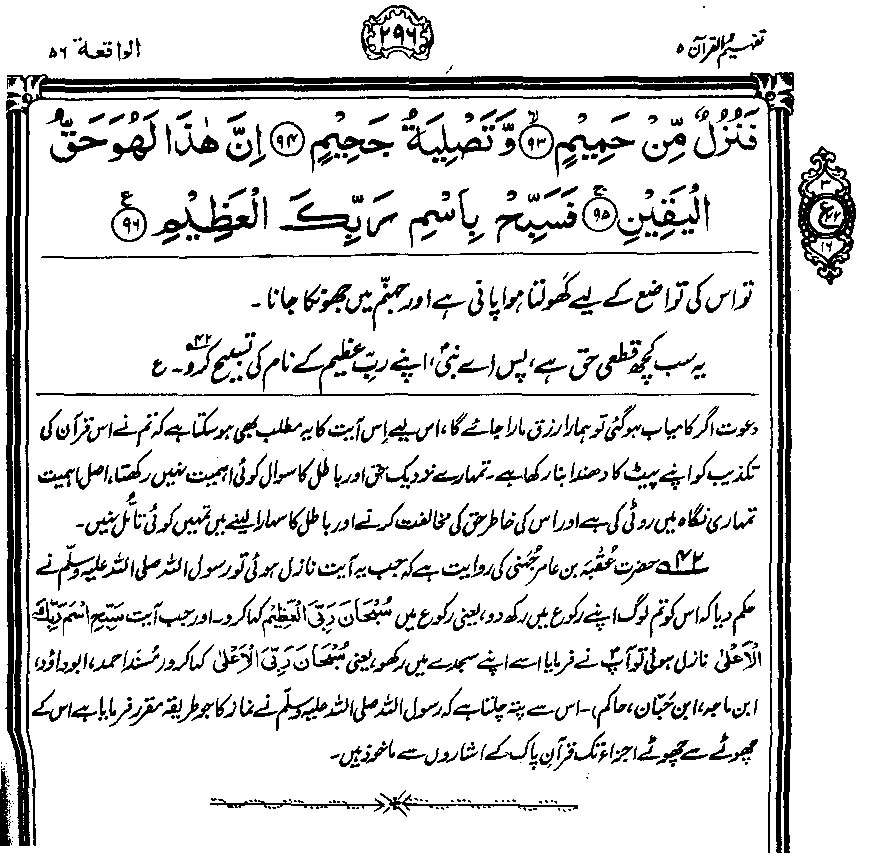 تفہیم القرآن ۵
۲۹۶
الواقعة ۵۶
فَنُزُلٌ مِّنْ حَمِيْمٍ ﴿۹۳﴾ وَّ تَصْلِيَةُ جَحِيْمٍ ﴿۹۴﴾ اِنَّ هٰذَا لَهُوَ حَقُّ
الْيَقِيْنِ ﴿۹۵﴾ فَسَبِّحْ بِاسْمِ رَبِّكَ الْعَظِيْمِ ﴿۹۶﴾
ع
۱۶
تو اس کی تواضع کے لیے کھولتا ہوا پانی ہے اور جہنّم میں جھونکا جانا۔
یہ سب کچھ قطعی حق ہے، پس (اے نبیؐ)، اپنے ربِّ عظیم کے نام کی تسبیح کرو۴۲۔ ع
دعوت اگر کامیاب ہو گئی تو ہمارا رزق مارا جائے گا، اس لیے اِس آیت کا یہ مطلب بھی ہو سکتا ہے کہ تم نے اس قرآن کی
تکذیب کو اپنے پیٹ کا دھندا بنا رکھا ہے۔ تمہارے نزدیک حق اور باطل کا سوال کوئی اہمیت نہیں رکھتا، اصل اہمیت
تمہاری نگاہ میں روٹی کی ہے اور اس کی خاطر حق کی مخالفت کرنے اور باطل کا سہارا لینے میں تمہیں کوئی تامُّل نہیں۔
۴۲ حضرت عُقْبَہ بن عامر جُہَنی کی روایت ہے کہ جب یہ آیت نازل ہوئی تو رسول اللہ صلی اللہ علیہ وسلّم نے
حکم دیا کہ اس کو تم لوگ اپنے رکوع میں رکھ دو، یعنی رکوع میں سُبْحَانَ رَبِّیَ الْعَظِیْمِ کہا کرو۔ اور جب آیت سَبِّحِ اسْمَ رَبِّکَ
الْاَعْلیٰ نازل ہوئی تو آپؐ نے فرمایا اسے اپنے سجدے میں رکھو، یعنی سُبْحَانَ رَبِّیَ الْاَعْلیٰ کہا کرو (مُسندِ احمد، ابوداؤد،
ابن ماجہ، ابن حِبّان، حاکم)۔ اس سے پتہ چلتا ہے کہ رسول اللہ صلی اللہ علیہ وسلّم نے نماز کا جو طریقہ مقرر فرمایا ہے اس کے
چھوٹے سے چھوٹے اجزاء تک قرآنِ پاک کے اشاروں سے ماخوذ ہیں۔